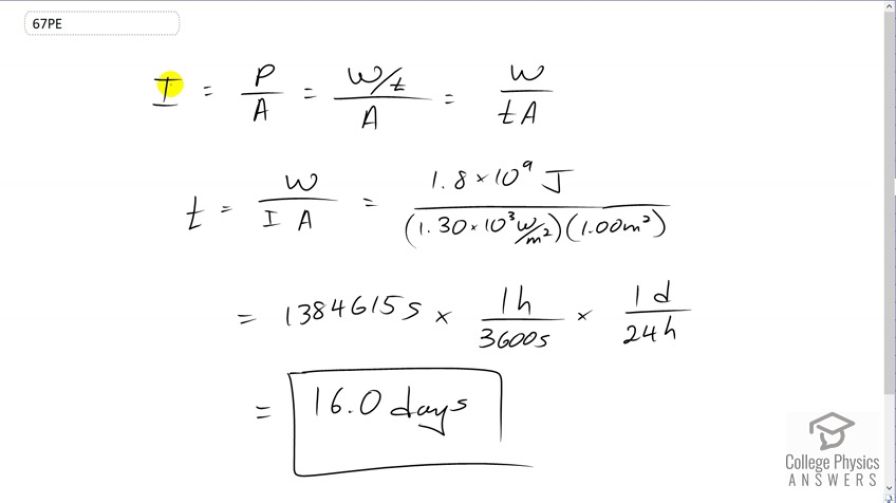 67PE
I = P/A = (W/t)/A = W/(tA)
t = W/(I A) = 1.8×10⁹ J/((1.30×10³ W/m²)(1.00m²))
= 1384615 s × 1h/3600s × 1d/24h
= 16.0 days
College Physics
ANSWERS